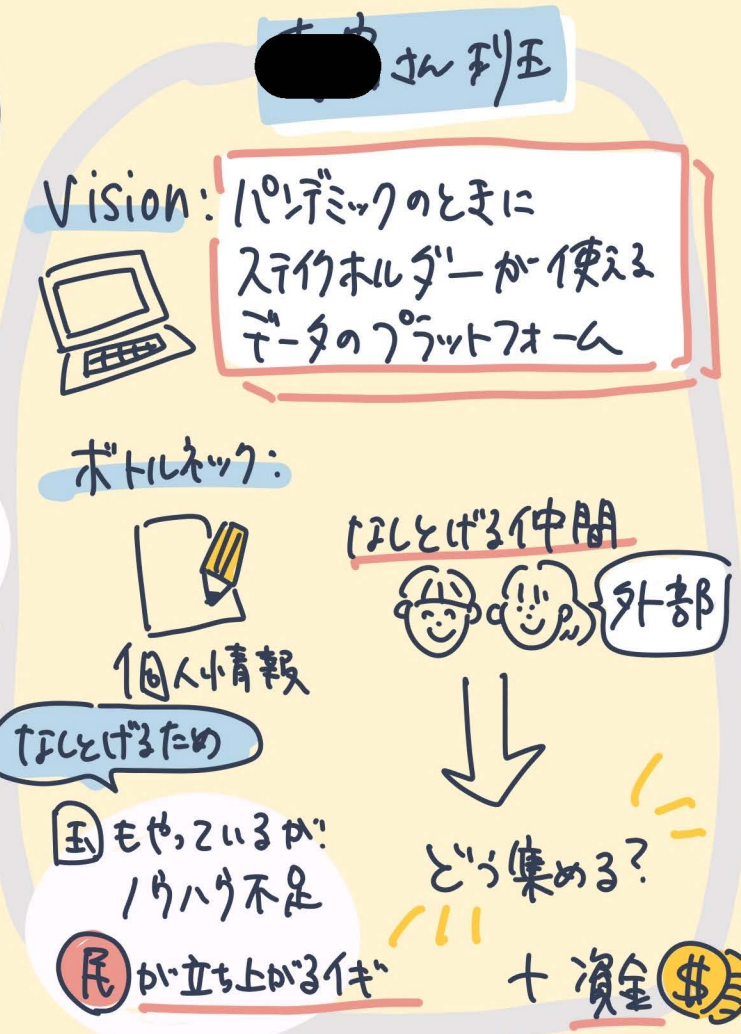 さん 班
Vision:
パンデミックのときに
ステイクホルダーが使える
データのプラットフォーム
ボトルネック:
個人情報
なしとげる仲間
外部
なしとげるため
国もやっているが!
ノウハウ不足
民が立ち上がるイギ
どう集める?
+ 資金 $